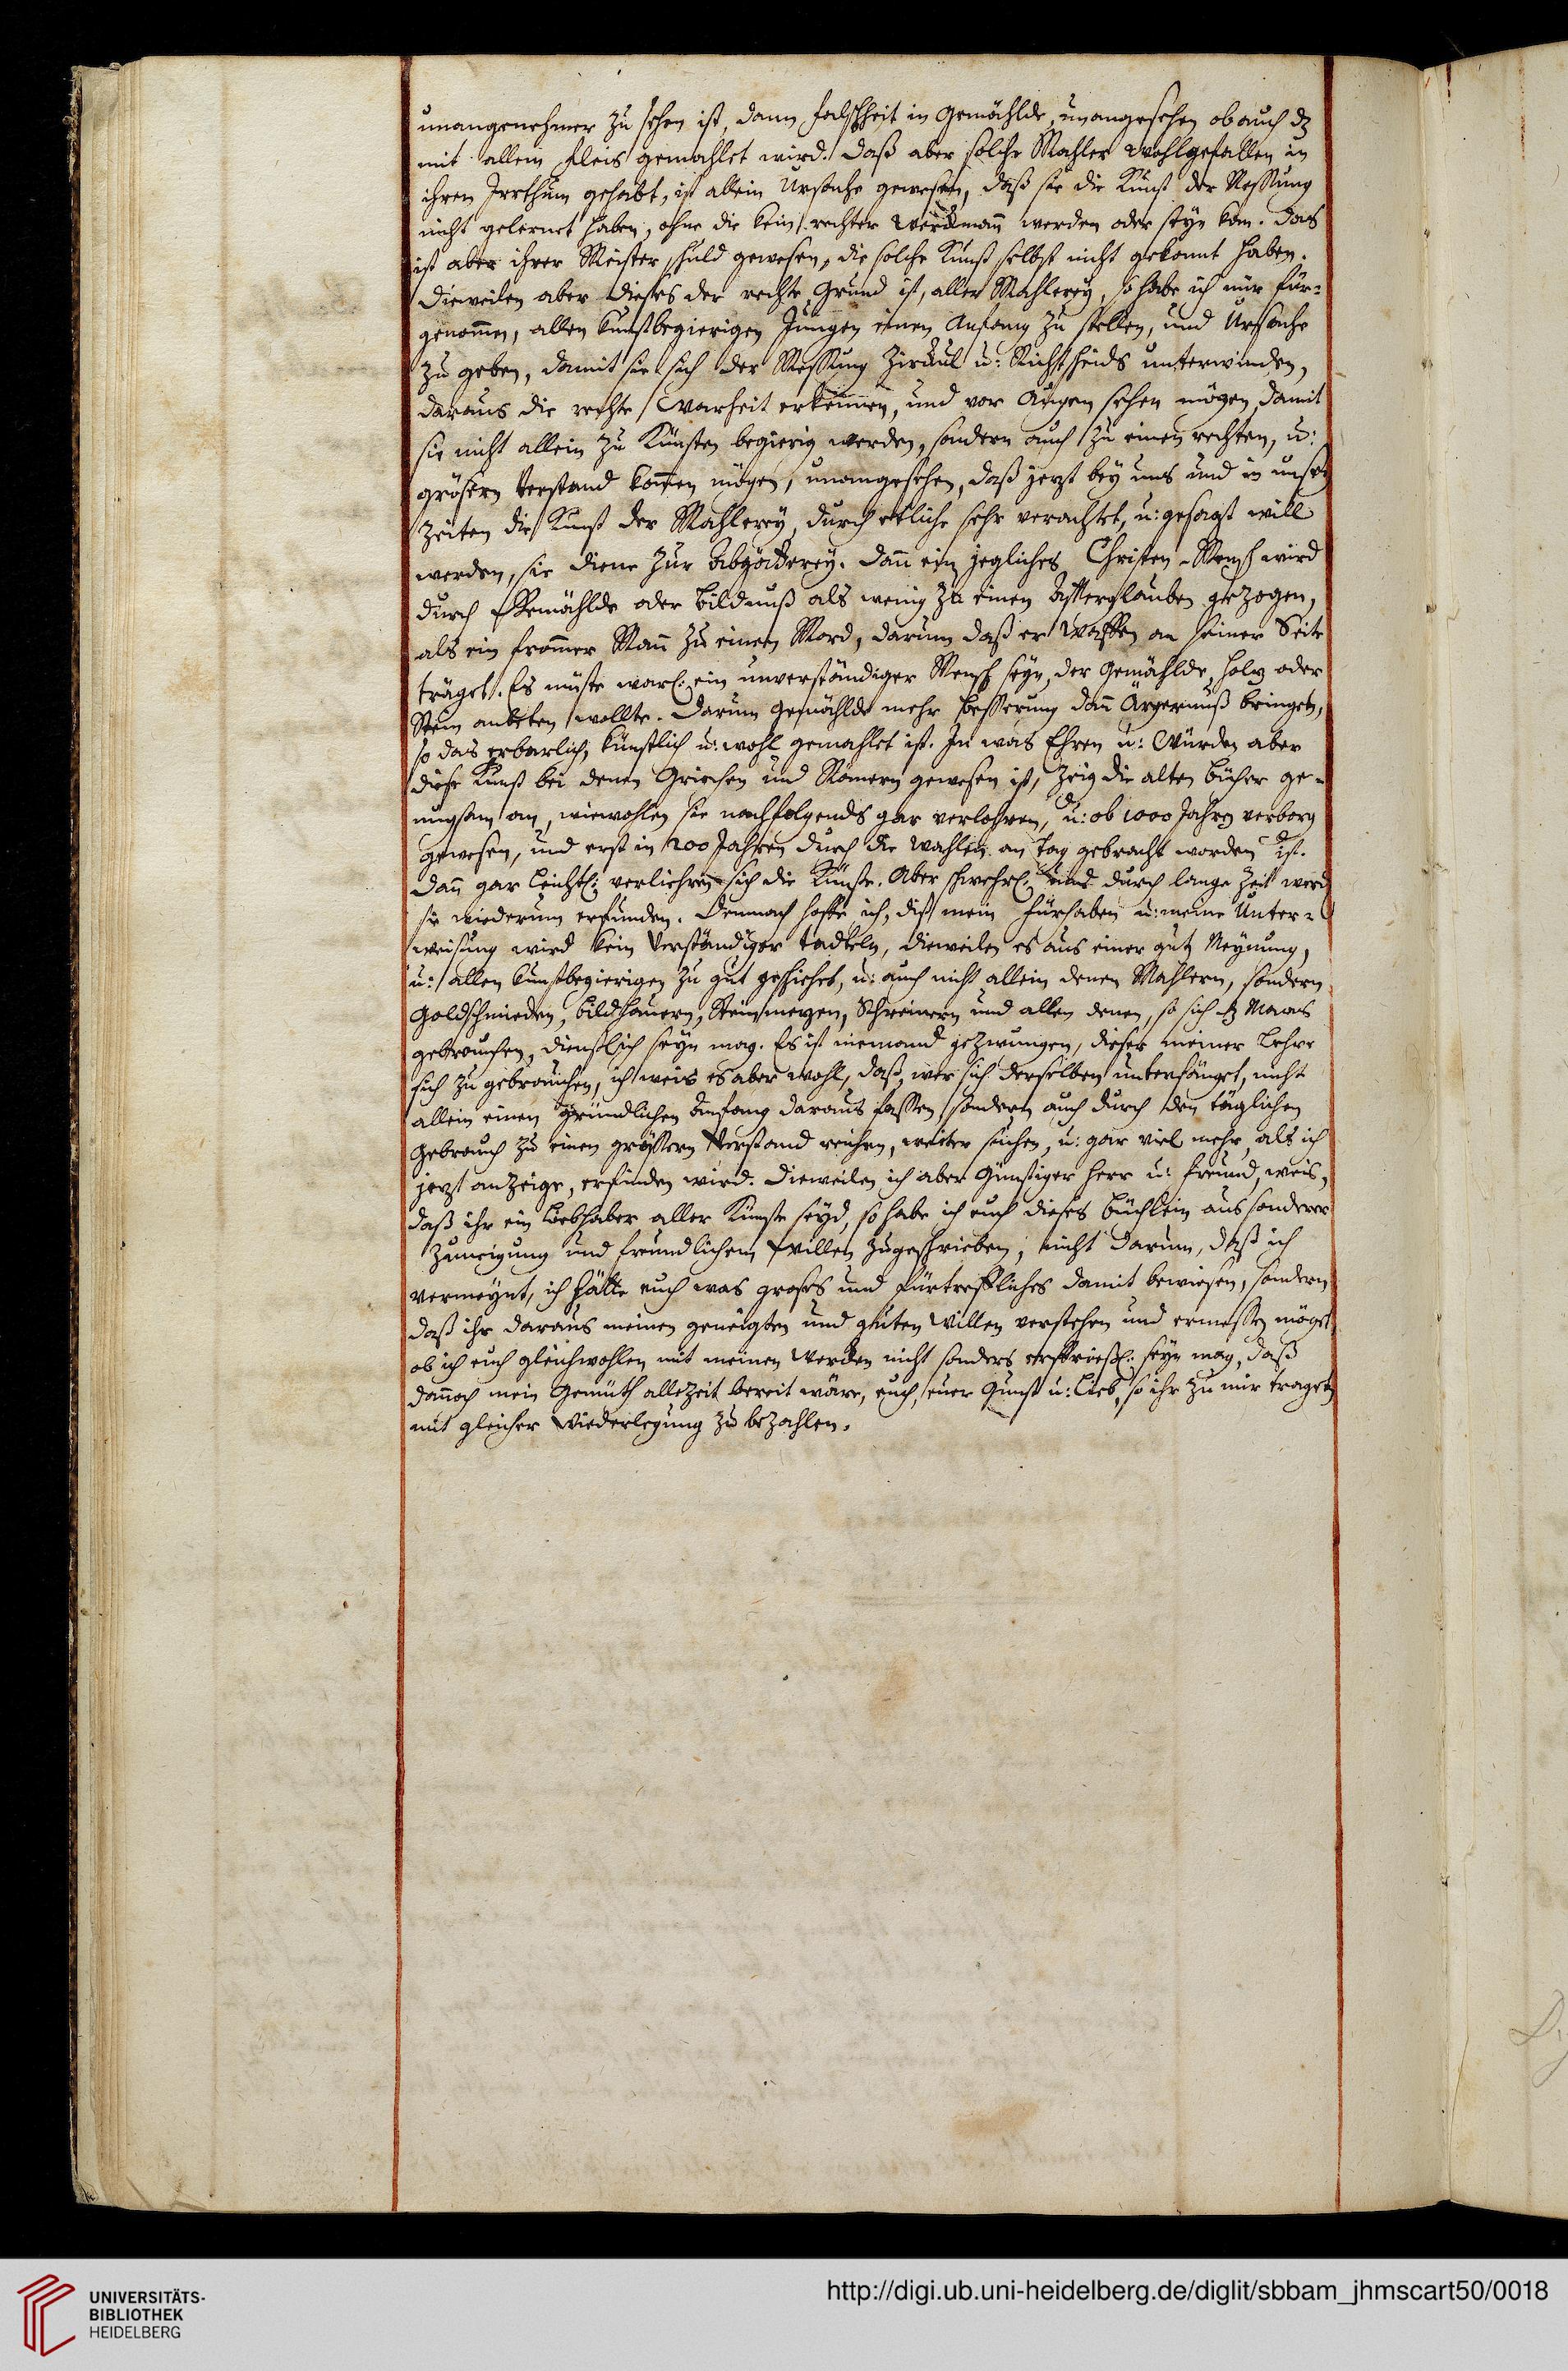 unangenehmer zu sehen ist, dann falschheit in Gemählde, unangesehen ob auch dz
mit allem fleis gemahlet wird. Daß aber solche Mahler Wohlgefallen in
ihren Irrthum gehabt, ist allein Ursache gewesen, daß sie die Kunst der Meßung
nicht gelernet haben, ohne die kein rechter Werckmann werden oder seyn kan. Das
ist aber ihrer Meister schuld gewesen, die solche Kunst selbst nicht gekonnt haben.
Dieweilen aber dieses der rechte Grund ist, aller Mahlerey, so habe ich mir für-
genommen, allen kunstbegierigen Jungen einen Anfang zu stellen, und Ursache
zu geben, damit sie sich der Messung Zirckul u: Richtscheids unterwinden,
daraus die rechte Warheit erkennen, und vor Augen sehen mögen, damit
sie nicht allein zu Künsten begierig werden, sondern auch zu einen rechten, u:
grösern Verstand kommen mögen, unangesehen, daß jezt bey uns und in unsern
Zeiten die Kunst der Mahlerey, durch etliche sehr verachtet, u: gesagt will
werden, sie diene zur Abgötterey. Dann ein jegliches Christen-Mensch wird
durch Gemählde oder Bildnuß als wenig zu einen Affterglauben gezogen,
als ein frommer Mann zu einen Mord, darum daß er Waffen an seiner Seite
träget. Es müste warl: ein unverständiger Mensch seyn, der Gemählde, Holz oder
Stein anbeten wollte. Darum Gemählde mehr Besserung dann Ärgernuß bringet,
so das erbarlich, künstlich u: wohl gemahlet ist. In was Ehren u: Würden aber
diese Kunst bei denen Griechen und Römern gewesen ist, zeig die alten Bücher ge-
nugsam an, wiewohlen sie nachfolgends gar verlohren, u: ob 1000 Jahre verborg
gewesen, und erst in 200 Jahren durch die Wahlen an Tag gebracht worden ist.
Dann gar leichtl: verliehren sich die Künste. Aber schwehrl: und durch lange Zeit werd
sie wiederum erfunden. Demnach hoffe ich, diß mein fürhaben u: meine Unter-
weisung wird kein Verständiger tadteln, dieweilen es aus einer gut Meynung,
u: allen kunstbegierigen zu gut geschiehet, u: auch nicht allein denen Mahlern, sondern
Goldschmieden, Bildhauern, Steinmezen, Schreinern und allen denen, so sich dz Maas
gebrauchen, dienstlich seyn mag. Es ist niemand gezwungen, dieser meiner Lehre
sich zu gebrauchen, ich weis es aber wohl, daß, wer sich derselben unterfänget, nicht
allein einen gründlichen Anfang daraus fassen, sondern auch durch den täglichen
Gebrauch zu einen grössern Verstand reichen, weiter suchen, u: gar viel mehr, als ich
jezt anzeige, erfinden wird. Dieweilen ich aber Günstiger Herr u: freund, weis,
daß ihr ein Liebhaber aller Künste seyd, so habe ich euch dieses Büchlein aus sonderer
Zuneigung und freundlichem Willen zugeschrieben, nicht darum, daß ich
vermeynt, ich hätte euch was groses und fürtreffliches damit bewiesen, sondern
daß ihr daraus meinen geneigten und guten Willen verstehen und ermessen möget,
ob ich euch gleichwohlen mit meinen Werken nicht sonders ersprießl: seyn mag, daß
dannoch mein Gemüth allezeit bereit wäre, euch, euer Gunst u: Lieb, so ihr zu mir traget,
mit gleicher Wiederlegung zu bezahlen.
UNIVERSITÄTS-
BIBLIOTHEK
HEIDELBERG
http://digi.ub.uni-heidelberg.de/diglit/sbbam_jhmscart50/0018